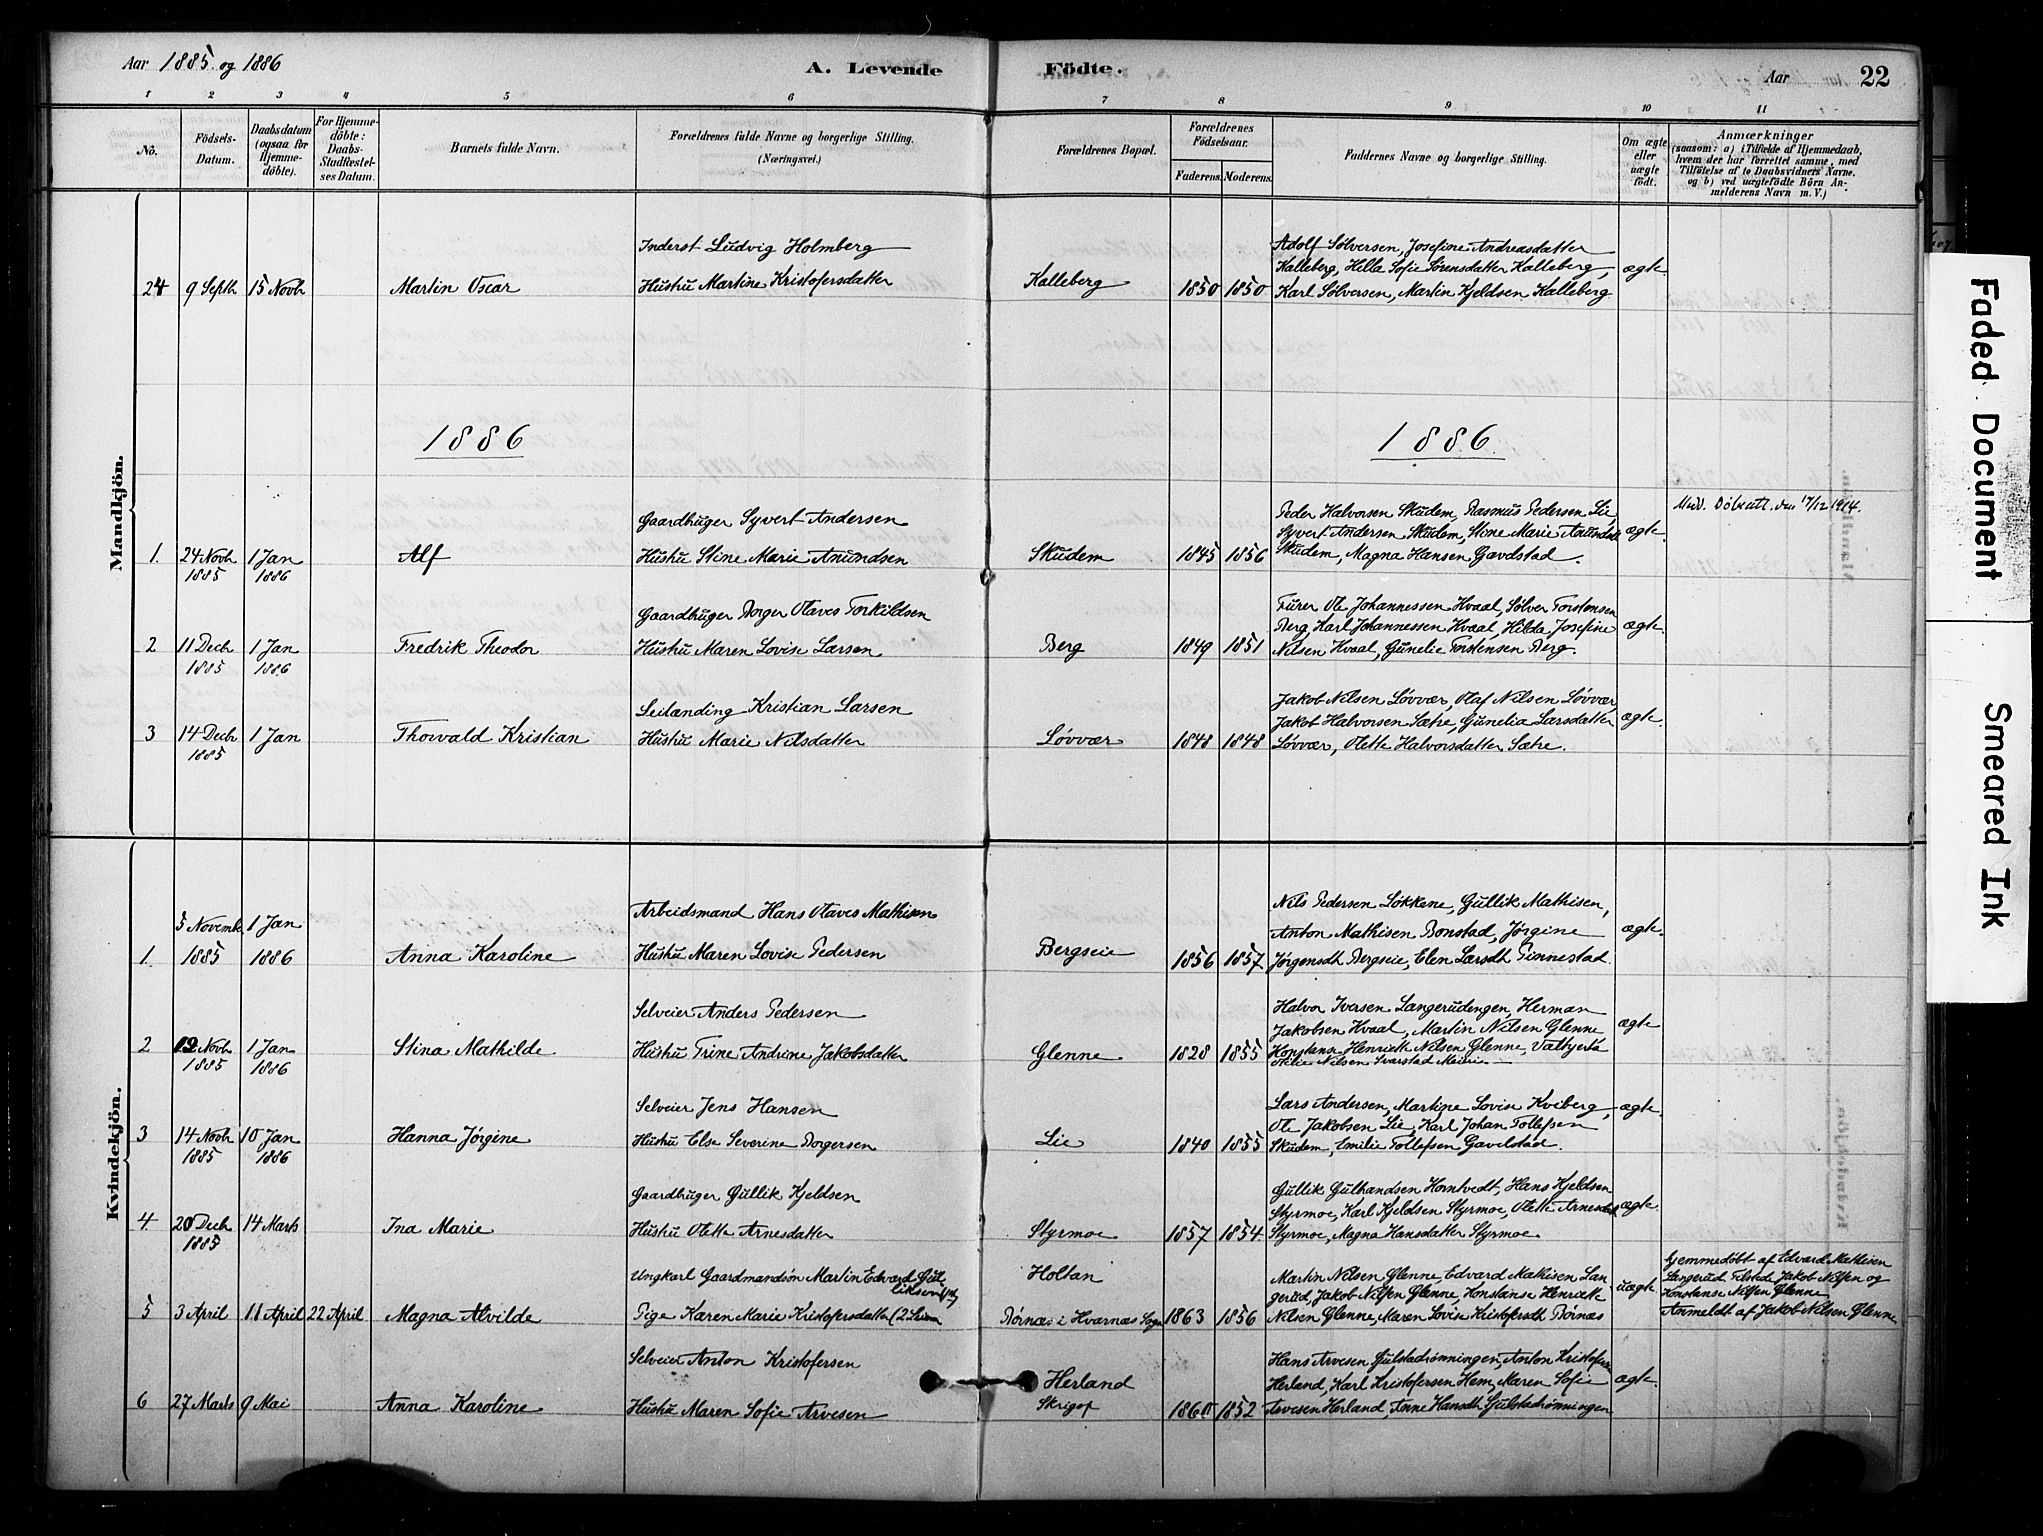 Aar 1885 og 1886
A. Levende Födte.
Aar
22
1 2 3 4 5 6 7 8 9 10 11
No.
Födsels-Datum.
Daabsdatum (ogsaa for Hjemme-döbte).
For Hjemme-döbte: Daabs-Stadfæstel-ses Datum.
Barnets fulde Navn.
Forældrenes fulde Navne og borgerlige Stilling.
(Næringsvei.)
Forældrenes Bopæl.
Forældrenes Födselsaar.
Faderens. Moderens.
Faddernes Navne og borgerlige Stilling.
Om ægte eller uægte födt.
Anmærkninger
(saasom: a) i Tilfælde af Hjemmedaab,
hvem der har forrettet samme, med
Tilföielse af to Daabsvidners Navne.
og b) ved uægtefödte Börn An-
melderens Navn m. V.)
Mandkjön.
Inderst Ludvig Holmberg
Adolf Sølversen, Josefine Andreasdatter
Kalleberg, Hella Sofie Sørensdatter Kalleberg, ægte
24 9 Septb 15 Novb Martin Oscar Hustru Martine Kristofersdatter Kalleberg 1850 1850 Karl Sølversen, Martin Kjeldsen Kalleberg
1886
1886
Medd. Döbsatt. den 17/12 1914.
Gaardbruger Syvert Andersen
Peder Halvorsen Skudem, Rasmus Pedersen Lie,
Syvert Andersen Skudem, Stine Marie ægte.
1. 24 Novb 1 Jan Alf Hustru Stine Marie Anundsen Skudem 1845 1856 Skudem, Magna Hansen Gavdstad.
1885 1886
Gaardbruger Borger Olaves Torkildsen
Furer Ole Johannessen Hvaal, Sølver Torstensen
Berg, Karl Johannessen Hvaal, Hilda Josefine ægte.
2 11 Decb 1 Jan Fredrik Theodor Hustru Maren Lovise Larsen Berg 1849 1851 Nilsen Hvaal, Gunelie Torstensen Berg.
1885 1886
Leilænding Kristian Larsen
Jakob Nilsen Løvvær, Olaf Nilsen Løvvær
Jakob Halvorsen Sætre, Gunelia Larsdatter ægte.
3 14 Decbr 1 Jan Thorvald Kristian Hustru Marie Nilsdatter Løvvær 1848 1848 Løvvær, Olette Halvorsdatter Sætre.
1885
Kvindekjön.
Arbeidsmand Hans Olaves Mathisen
Nils Pedersen Løkkene, Gullik Mathisen,
5 Novemb. 1 Jan
Anton Mathisen Bonstad, Jørgine ægte.
1. 1885 1886 Anna Karoline Hustru Maren Lovise Pedersen Bergseie 1856 1857 Jørgensdt Bergseie, Elen Larsdt Tinnestad.
Selveier Anders Pedersen
Halvor Iversen Langerudengen, Herman
Jakobsen Hvaal, Martin Nilsen Glenne ægte
2 12 Novb 1 Jan Stina Mathilde Hustru Trine Andrine Jakobsdatter Glenne 1828 1855 Konstanse Henriette Nilsen Glenne, Valbjerta
1885 1886
Otilie Nilsen Svarstad Meieri
Selveier Jens Hansen
Lars Andersen, Martine Lovise Kviberg, ægte.
Ole Jakobsen Lie, Karl Johan Tollefsen
3 14 Novb 10 Jan Hanna Jørgine Hustru Else Severine Borgersen Lie 1840 1855 Skudem, Emilie Tollefsen Gavelstad.
1885 1886
Gaardbruger Gullik Kjeldsen
Gullik Gulbrandsen Horntvedt, Hans Kjeldsen
Styrmoe, Karl Kjeldsen Styrmoe, Olette Arnesdatt ægte.
4. 20 Decb 14 Marts Ina Marie Hustru Olette Arnesdatter Styrmoe 1857 1854 Styrmoe, Magna Hansdatter Styrmoe.
1885
Ungkarl Gaardmandsøn Martin Edvard Gul-
liksen
Holtan
Martin Nilsen Glenne, Edvard Mathisen Lan-
gerud, Jakob Nilsen Glenne, Konstanse Henriette uægte
Hjemmedöbt af Edvard Mathisen
Langerud Tilstede Jakob Nilsen og
Konstanse Nilsen Glenne
5 3 April 11 April 22 April Magna Alvilde Pige Karen Marie Kristofersdatter Børnæs i Hvarnæs Sogn 1863 1856 Nilsen Glenne, Maren Lovise Kristofersdt Børnæs
Anmeldt af Jakob Nilsen Glenne
Selveier Anton Kristofersen
Hans Arvesen Gulstadrønningen, Anton Kristofersen
Herland
Herland, Karl Kristofersen Hem, Maren Sofie ægte.
6 27 Marts 9 Mai Anna Karoline Hustru Maren Sofie Arvesen 1860 1852 Arvesen Herland, Anne Hansdt Gulstadrønningen
Faded Document
Smeared Ink